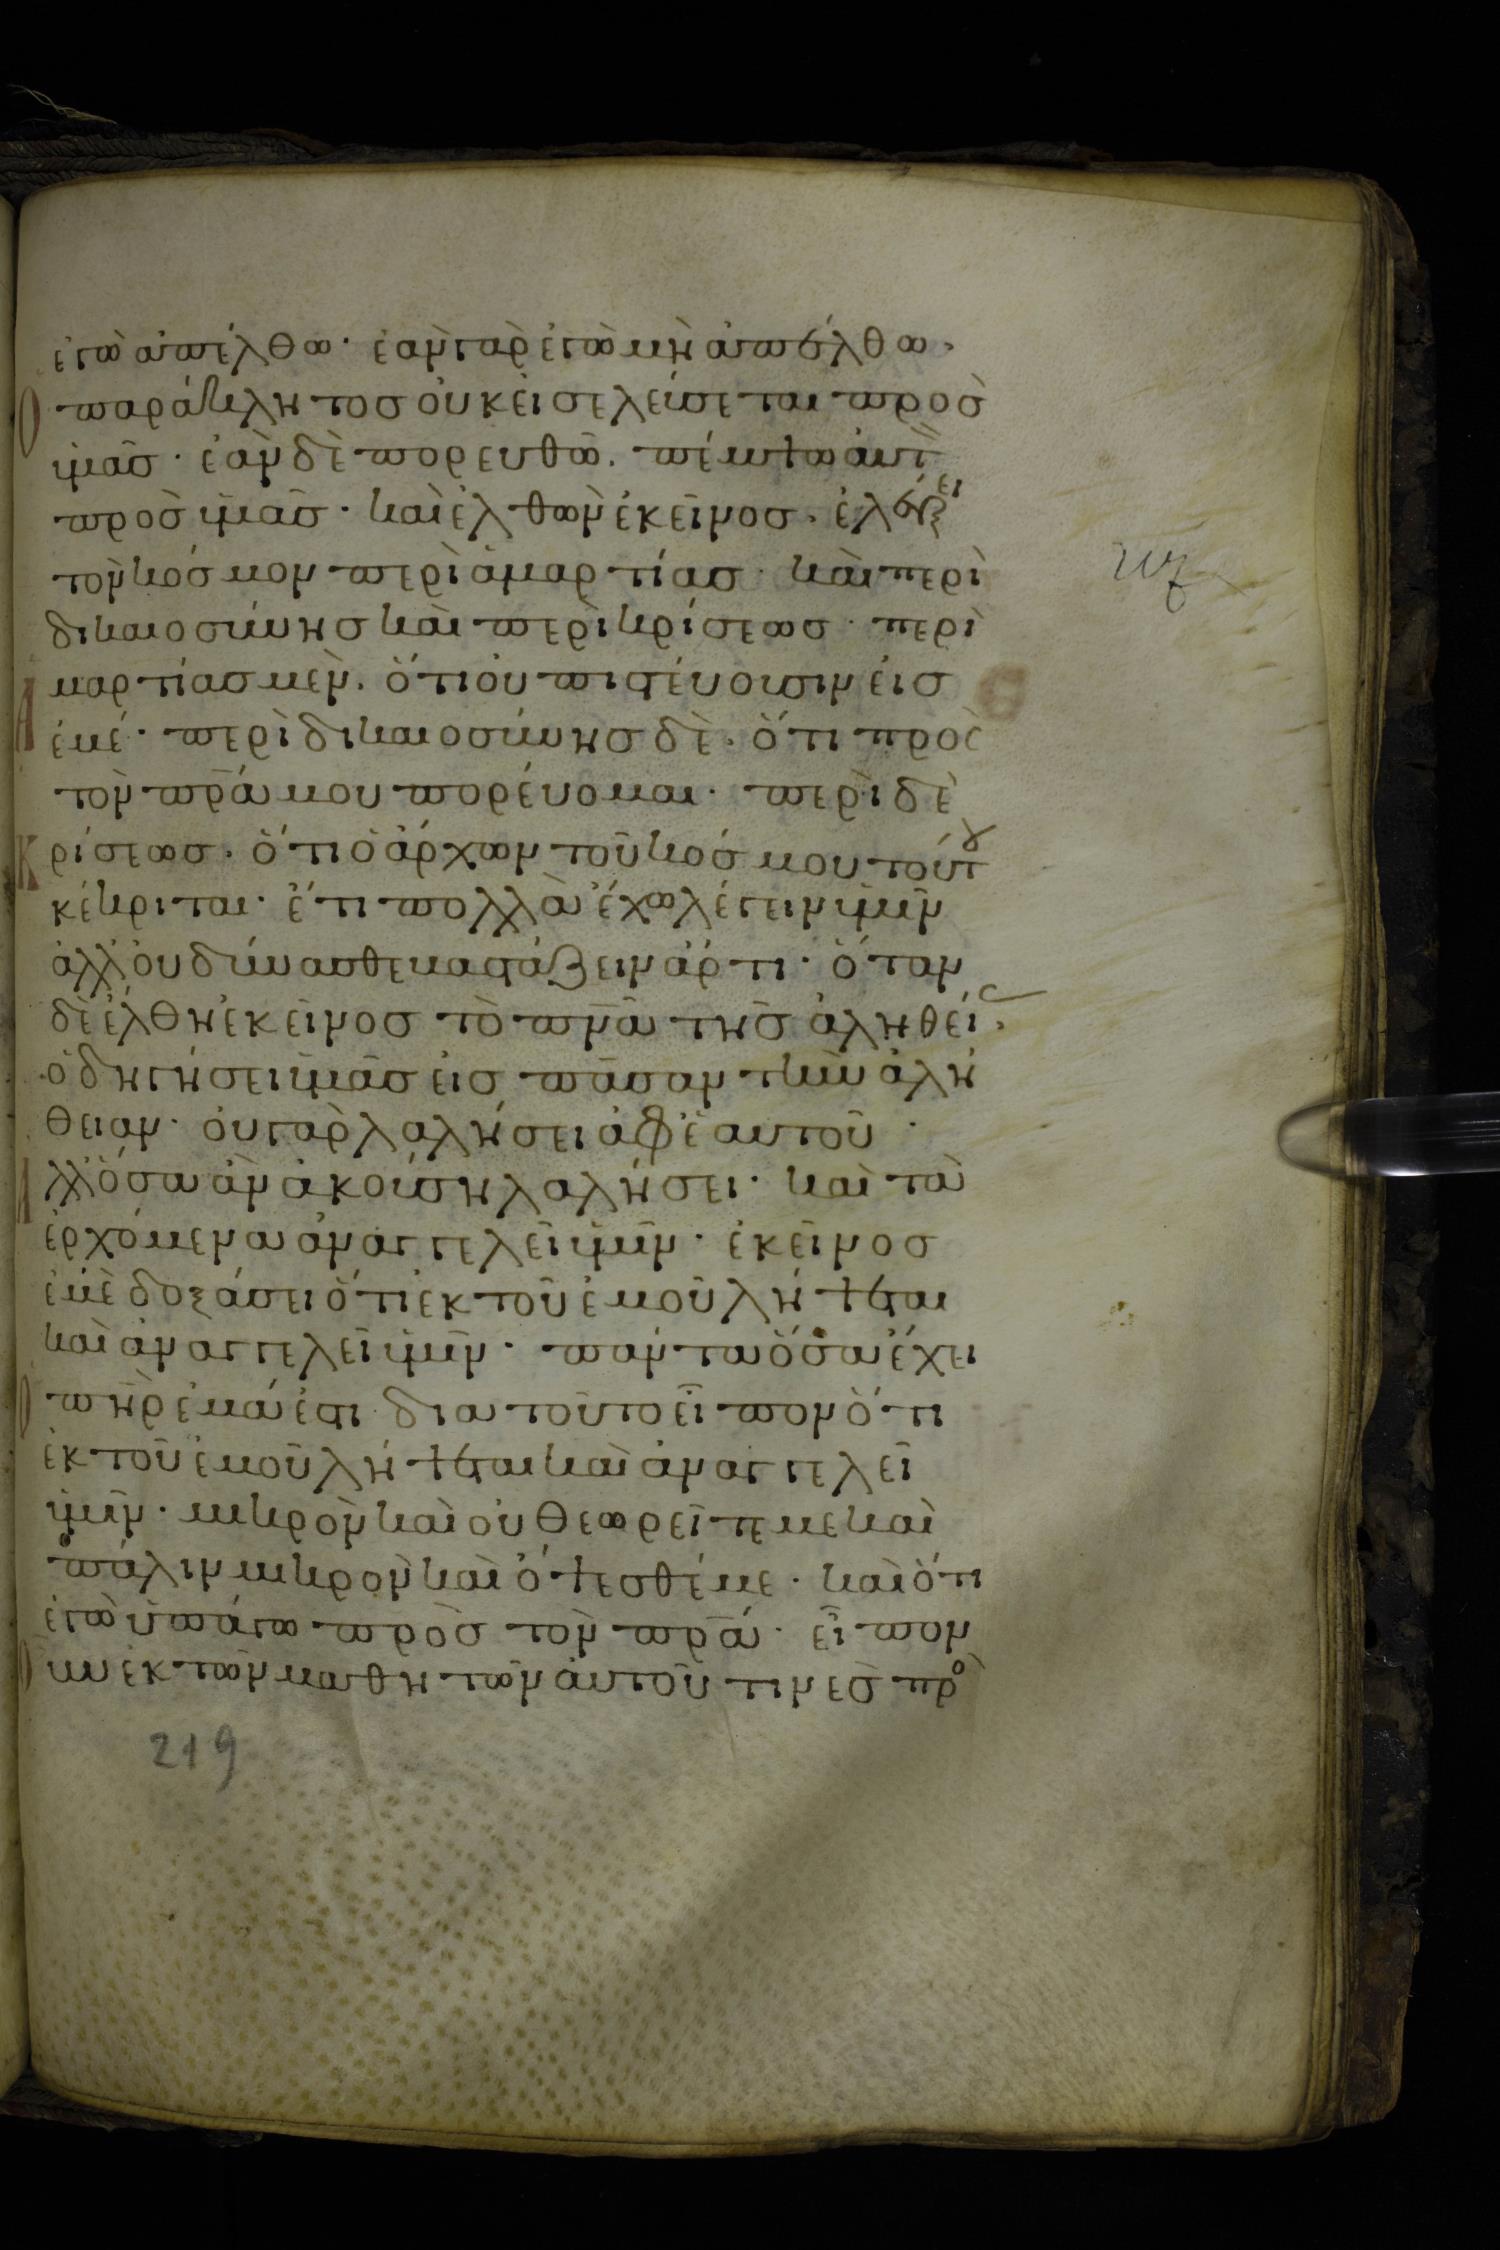 ἐγὼ ἀπέλθω· ἐὰν γὰρ ἐγὼ μὴ ἀπέλθω·
Ὁ παράκλητος οὐκ ἐλεύσεται πρὸς
ὑμᾶς· ἐὰν δὲ πορευθῶ· πέμψω αὐτ
πρὸς ὑμᾶς· καὶ ἐλθὼν ἐκεῖνος· ἐλέγξει
τὸν κόσμον περὶ ἁμαρτίας· καὶ περὶ
δικαιοσύνης καὶ περὶ κρίσεως· περὶ
Ἁμαρτίας μὲν· ὅτι οὐ πιστεύουσιν εἰς
ἐμέ· περὶ δικαιοσύνης δὲ· ὅτι πρὸς
τὸν πρ̄α μου πορεύομαι· περὶ δὲ
Κρίσεως· ὅτι ὁ ἄρχων τοῦ κόσμου τούτου
κέκριται· ἔτι πολλὰ ἔχω λέγειν ὑμῖν
ἀλλ' οὐ δύνασθε βαστάζειν ἄρτι· ὅταν
δὲ ἔλθη ἐκεῖνος τὸ πν̄α τῆς ἀληθείας·
ὁδηγήσει ὑμᾶς εἰς πᾶσαν τὴν ἀλή
θειαν· οὐ γὰρ λαλήσει ἀφ' ἑαυτοῦ·
Ἀλλ' ὅσα ἂν ἀκούση λαλήσει· καὶ τὰ
ἐρχόμενα ἀναγγελεῖ ὑμῖν· ἐκεῖνος
ἐμὲ δοξάσει ὅτι ἐκ τοῦ ἐμοῦ λήψεται
καὶ ἀναγγελεῖ ὑμῖν· πάντα ὅσα ἔχει
Ὁ πη̄ρ ἐμά ἐστι διὰ τοῦτο εἶπον ὅτι
ἐκ τοῦ ἐμοῦ λήψεται καὶ ἀναγγελεῖ
ὑμῖν· μικρὸν καὶ οὐ θεωρεῖτέ με καὶ
πάλιν μικρὸν καὶ ὄψεσθέ με· καὶ ὅτι
ἐγὼ ὑπάγω πρὸς τὸν πρ̄α· εἶπον
Οὖν ἐκ τῶν μαθητῶν αὐτοῦ τινὲς πρὸ
219